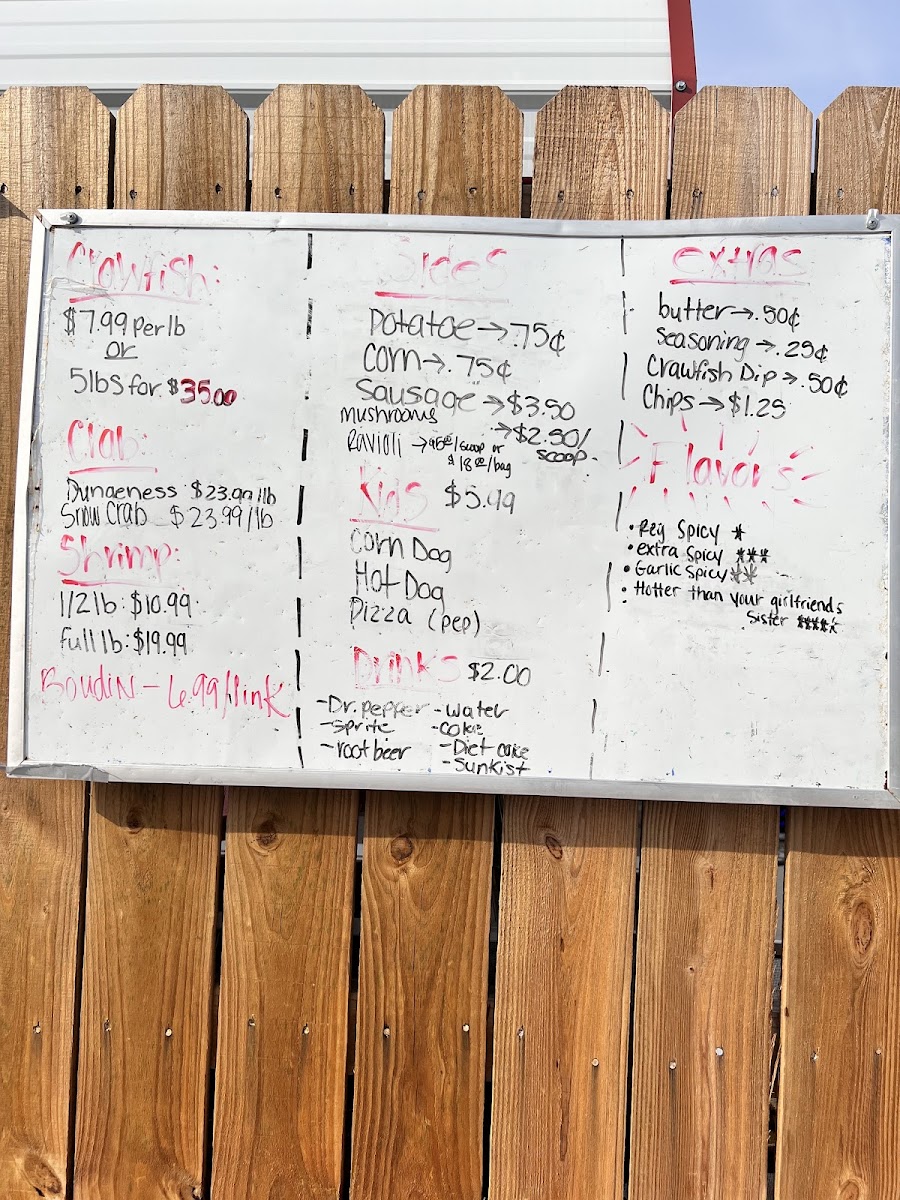 Crawfish:
$7.99 Per lb
or
5lbs for $35.00
Crab:
Dungeness $23.99/lb
Snow Crab $23.99/lb
Shrimp:
1/2 lb: $10.99
full lb: $19.99
Boudin - 6.99/link
Sides
Potatoe → .75¢
Corn → .75¢
Sausage → $3.50
mushrooms → $2.50/
scoop
Ravioli → /scoop or
$18.00/bag
Kids $5.99
Corn Dog
Hot Dog
Pizza (pep)
Drinks $2.00
- Dr. pepper - water
- sprite - coke
- root beer - Diet coke
- Sunkist
extras
butter → .50¢
Seasoning → .25¢
Crawfish Dip → .50¢
Chips → $1.25
Flavors
• Reg Spicy *
• extra spicy ***
• Garlic spicy **
• Hotter than your girlfriends
sister *****